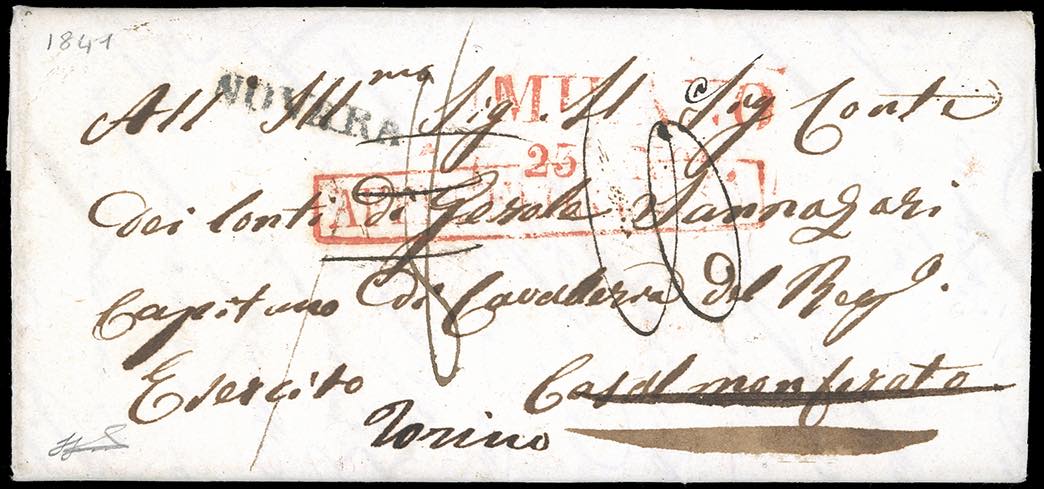 1841
NOVARA
MILANO
25
All Illmo Sig. Il Sig Conte
dei Conti di Gerola Sannazari
Capitano di Cavalleria del Regº.
Esercito Casal monferato
Torino